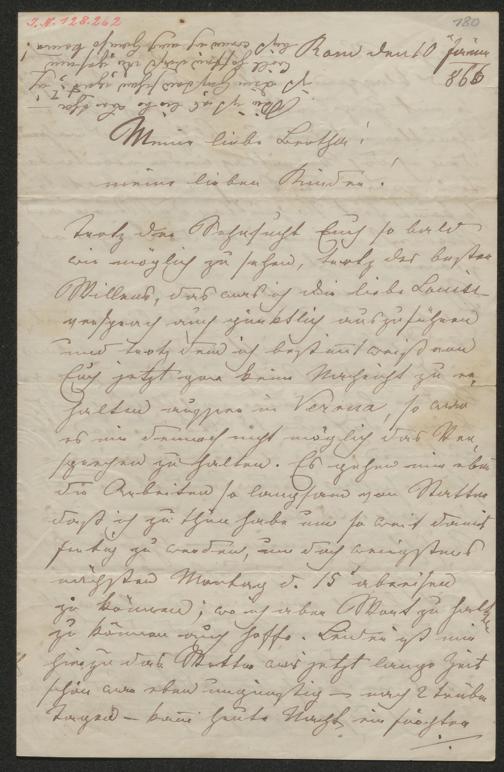 I.N. 128.262
180
Rom den 10
866
Meine liebe Bertha!
meine lieben Kinder!
trotz der Sehnsucht Euch so bald
wie möglich zu sehen, trotz des besten
Willens, das was ich Dir liebe Louise
versprach auch pünktlich auszuführen
und trotz dem ich bestimt weiß von
Euch jetzt gar keine Nachricht zu er-
halten ausser in Verona, so war
es mir dennoch nicht möglich das Ver-
sprechen zu halten. Es gehen mir eben
die Arbeiten so langsam von Statten
daß ich zu thun habe um so weit damit
fertig zu werden, um doch wenigstens
nächsten Montag d. 15 abreisen
zu können; wo ich aber Wort zu halten
zu können auch hoffe. Leider ist mir
hiezu das Wetter was jetzt lange Zeit
schön war eben ungünstig – nach 2 trüben
Tagen – kam heute Nacht ein